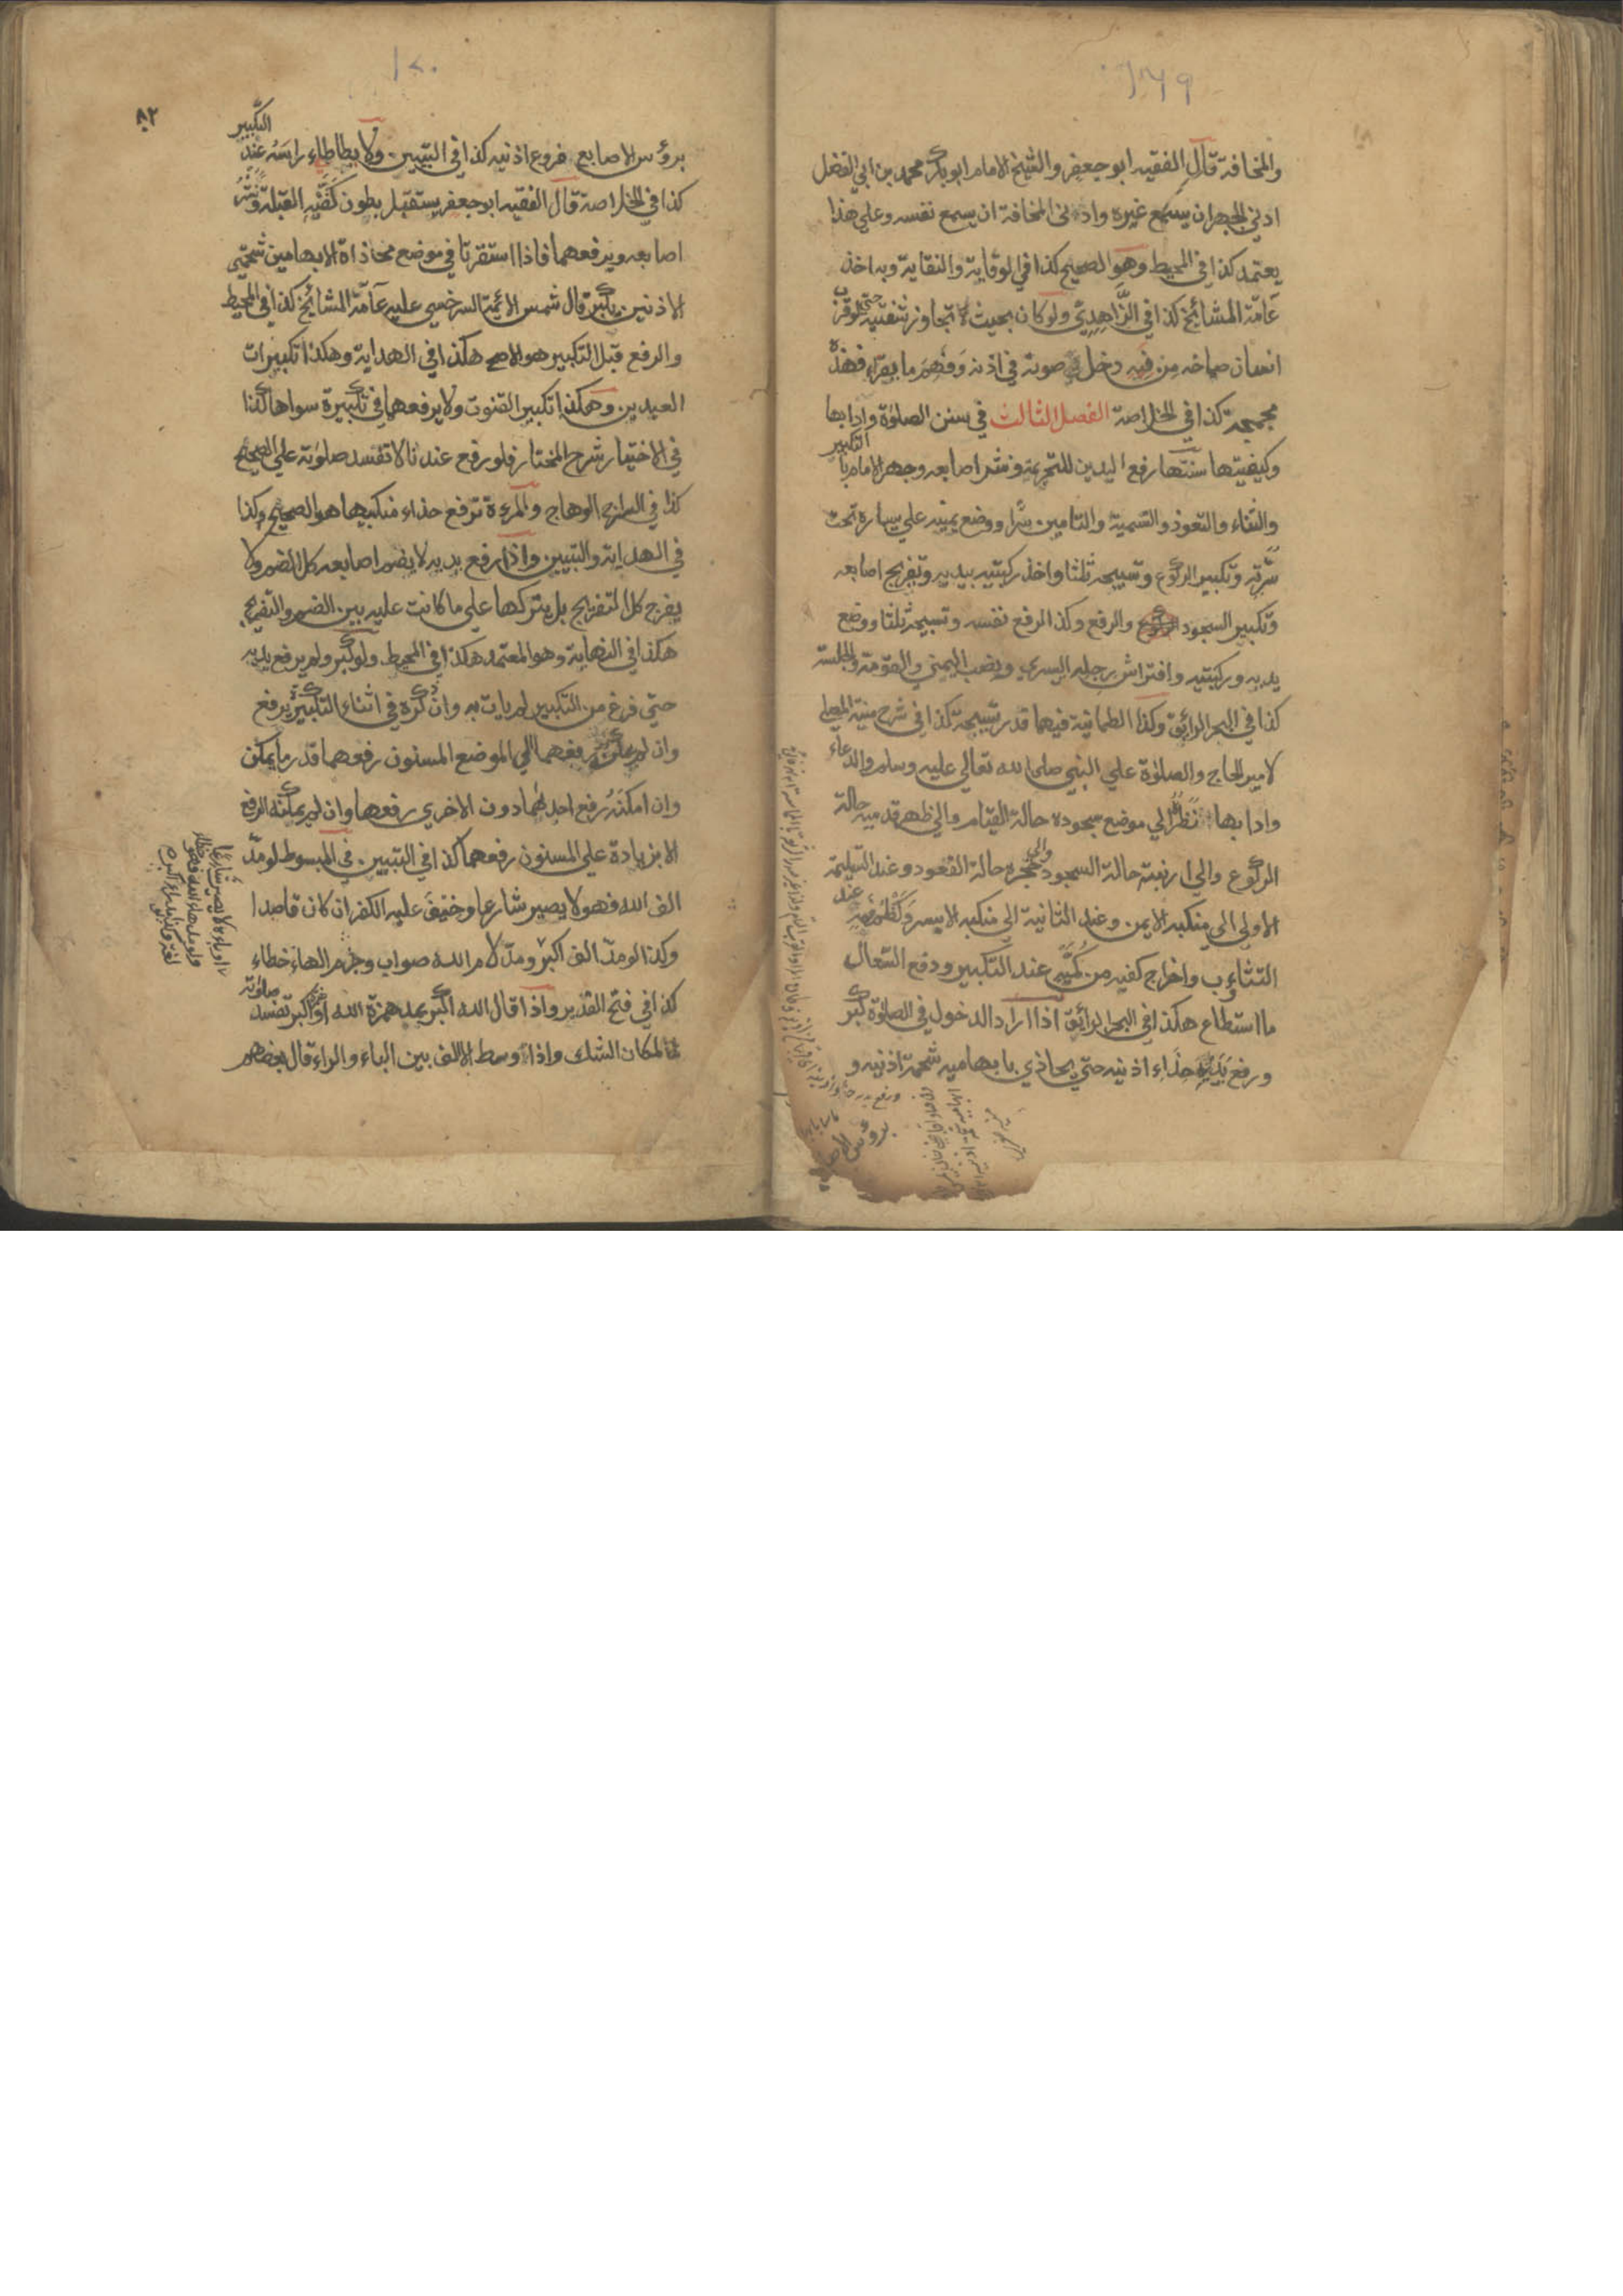 ١٦٩
والمخافة قال الفقيه ابو جعفر والشيخ الامام ابو بكر محمد بن ابي الفضل
ادنى الجهر ان يسمع غيره وادنى المخافة ان يسمع نفسه وعلى هذا
يعتمد كذا في المحيط وهو الصحيح كذا في الوقاية والنقاية وبه اخذ
عامة المشائخ كذا في الزاهدي ولو كان بحيث لا تجاوز شفتيه حتى لو قرب
انسان صماخه من فيه دخل صوته في اذنه وفهم ما يقراء فهذه
مجمجة كذا في الخلاصة الفصل الثالث في سنن الصلوة وادابها
وكيفيتها سنتها رفع اليدين للتحريمة ونشر اصابعه وجهر الامام با
التكبير
والثناء والتعوذ والتسمية والتامين سرا ووضع يمينه على يساره تحت
سرته وتكبير الركوع وتسبيحه ثلثا واخذ ركبتيه بيديه وتفريج اصابعه
وتكبير السجود والرفع وكذا الرفع نفسه وتسبيحه ثلثا ووضع
يديه وركبتيه وافتراش رجله اليسرى ونصب اليمنى والقومة والجلسة
كذا في البحر الرائق وكذا الطمانية فيهما قدر تسبيحة كذا في شرح منية المصلي
لامير الحاج والصلوة على النبي صلى الله تعالى عليه وسلم والدعاء
وادابها نظر الي موضع سجوده حالة القيام والي ظهر قدميه حالة
الركوع والي ارنبته حالة السجود والى حجره حالة القعود وعند التسليمة
الاولى الي منكبه الايمن وعند الثانية الي منكبه الايسر وكظم فمه عند
التثاءوب واخراج كفيه من كميه عند التكبير ودفع السعال
ما استطاع هكذا في البحر الرائق اذا اراد الدخول في الصلوة كبر
ورفع يديه حذاء اذنيه حتى يحاذي بابهاميه شحمة اذنيه و
١٧٠
٨٢
بروس الاصابع فروع اذنيه كذا في التبيين ولا يطاطاء راسه عند التكبير
كذا في الخلاصة قال الفقيه ابو جعفر يستقبل بطون كفيه القبلة وينشر
اصابعه ويرفعهما فاذا استقرتا في موضع محاذاة الابهامين شحمتي
الاذنين يكبر قال شمس الائمة السرخسي عليه عامة المشائخ كذا في المحيط
والرفع قبل التكبير هو الاصح هكذا في الهداية وهكذا تكبيرات
العيدين وهكذا تكبير القنوت ولا يرفعهما في تكبيرة سواها كذا
في الاختيار شرح المختار فلو رفع عندنا لا تفسد صلوته على الصحيح
كذا في السراج الوهاج والمرءة ترفع حذاء منكبيها هو الصحيح وكذا
في الهداية والتبيين واذا رفع يديه لا يضم اصابعه كل الضم ولا
يفرج كل التفريج بل يتركها على ما كانت عليه بين الضم والتفريج
هكذا في النهاية وهو المعتمد هكذا في المحيط ولو كبر ولم يرفع يديه
حتى فرغ من التكبير لم يات به وان ذكره في اثناء التكبير يرفع
وان لم يمكنه رفعهما الى الموضع المسنون رفعهما قدر ما يمكن
وان امكنه رفع احدهما دون الاخرى رفعها وان لم يمكنه الرفع
الا بزيادة على المسنون رفعهما كذا في التبيين في المبسوط لو مد
الف الله فهو لا يصير شارعا وخيف عليه الكفر ان كان قاصدا
وكذا لو مد الف اكبر ومد لام الله صواب وجزم الهاء خطاء
كذا في فتح القدير واذا قال الله اكبر بمد همزة الله او اكبر تفسد صلوته
لمكان الشك واذا وسط الالف بين الباء والراء قال بعضهم